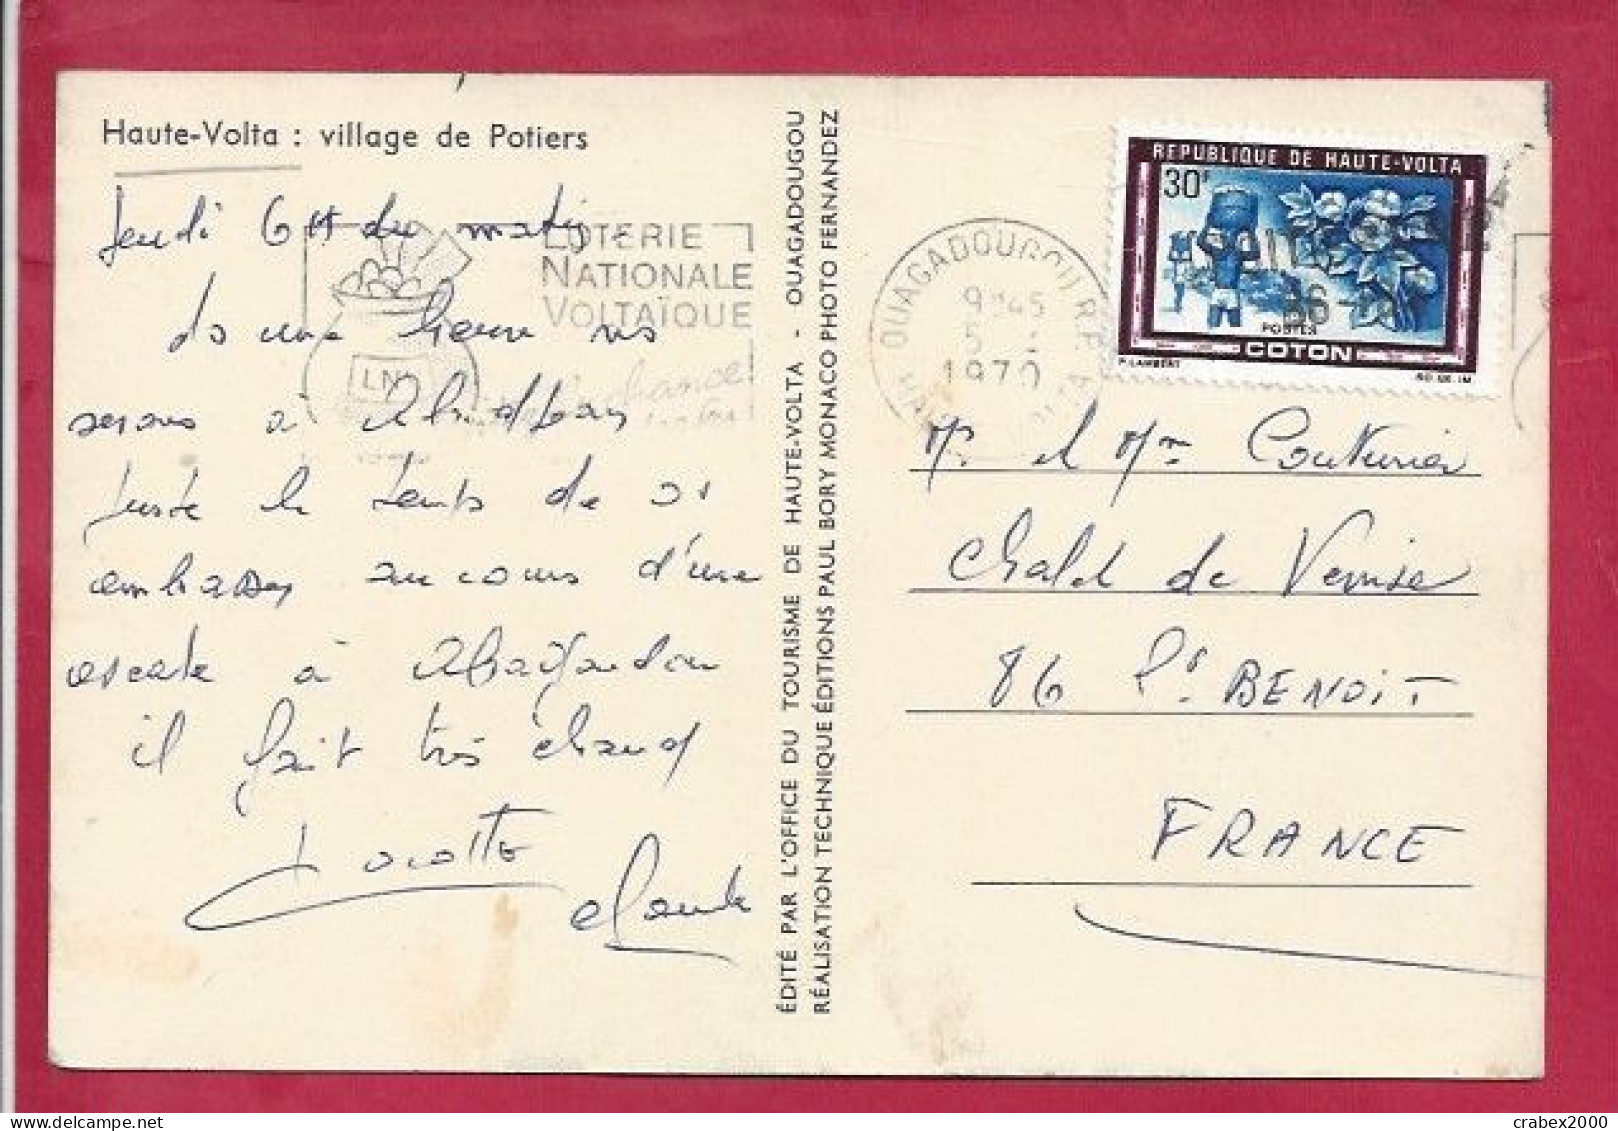 Haute-Volta : village de Potiers
Jeudi 6H du matin
ds une heure ns
serons à
Juste le temps de vs
embrasser au cours d'une
escale à
il fait très chaud
Claude
LOTERIE
NATIONALE
VOLTAÏQUE
LN
chance
ÉDITÉ PAR L'OFFICE DU TOURISME DE HAUTE-VOLTA - OUAGADOUGOU
RÉALISATION TECHNIQUE ÉDITIONS PAUL BORY MONACO PHOTO FERNANDEZ
OUAGADOUGOU R.P.
9H45
5
1970
REPUBLIQUE DE HAUTE-VOLTA
30F
POSTES
COTON
P. LAMBERT
Mr et Mme Couturier
Chalet de Venise
86 St. BENOIT
FRANCE
crabex2000